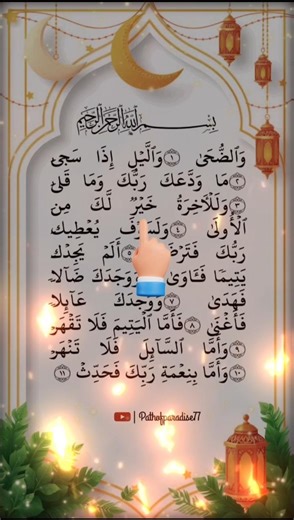 بِسْمِ ٱللَّهِ ٱلرَّحْمَـٰنِ ٱلرَّحِيمِ
وَٱلضُّحَىٰ ١ وَٱلَّيْلِ إِذَا سَجَىٰ
٢ مَا وَدَّعَكَ رَبُّكَ وَمَا قَلَىٰ
٣ وَلَلْـَٔاخِرَةُ خَيْرٌ لَّكَ مِنَ
ٱلْأُولَىٰ ٤ يُعْطِيكَ
رَبُّكَ ٥ أَلَمْ يَجِدْكَ
يَتِيمًا فَـَٔاوَىٰ وَوَجَدَكَ ضَآلًّا
فَهَدَىٰ ٧ وَوَجَدَكَ عَآئِلًا
فَأَغْنَىٰ ٨ فَأَمَّا ٱلْيَتِيمَ فَلَا تَقْهَرْ
٩ وَأَمَّا ٱلسَّآئِلَ فَلَا تَنْهَرْ
١٠ وَأَمَّا بِنِعْمَةِ رَبِّكَ فَحَدِّثْ ١١
| Pathofparadise77